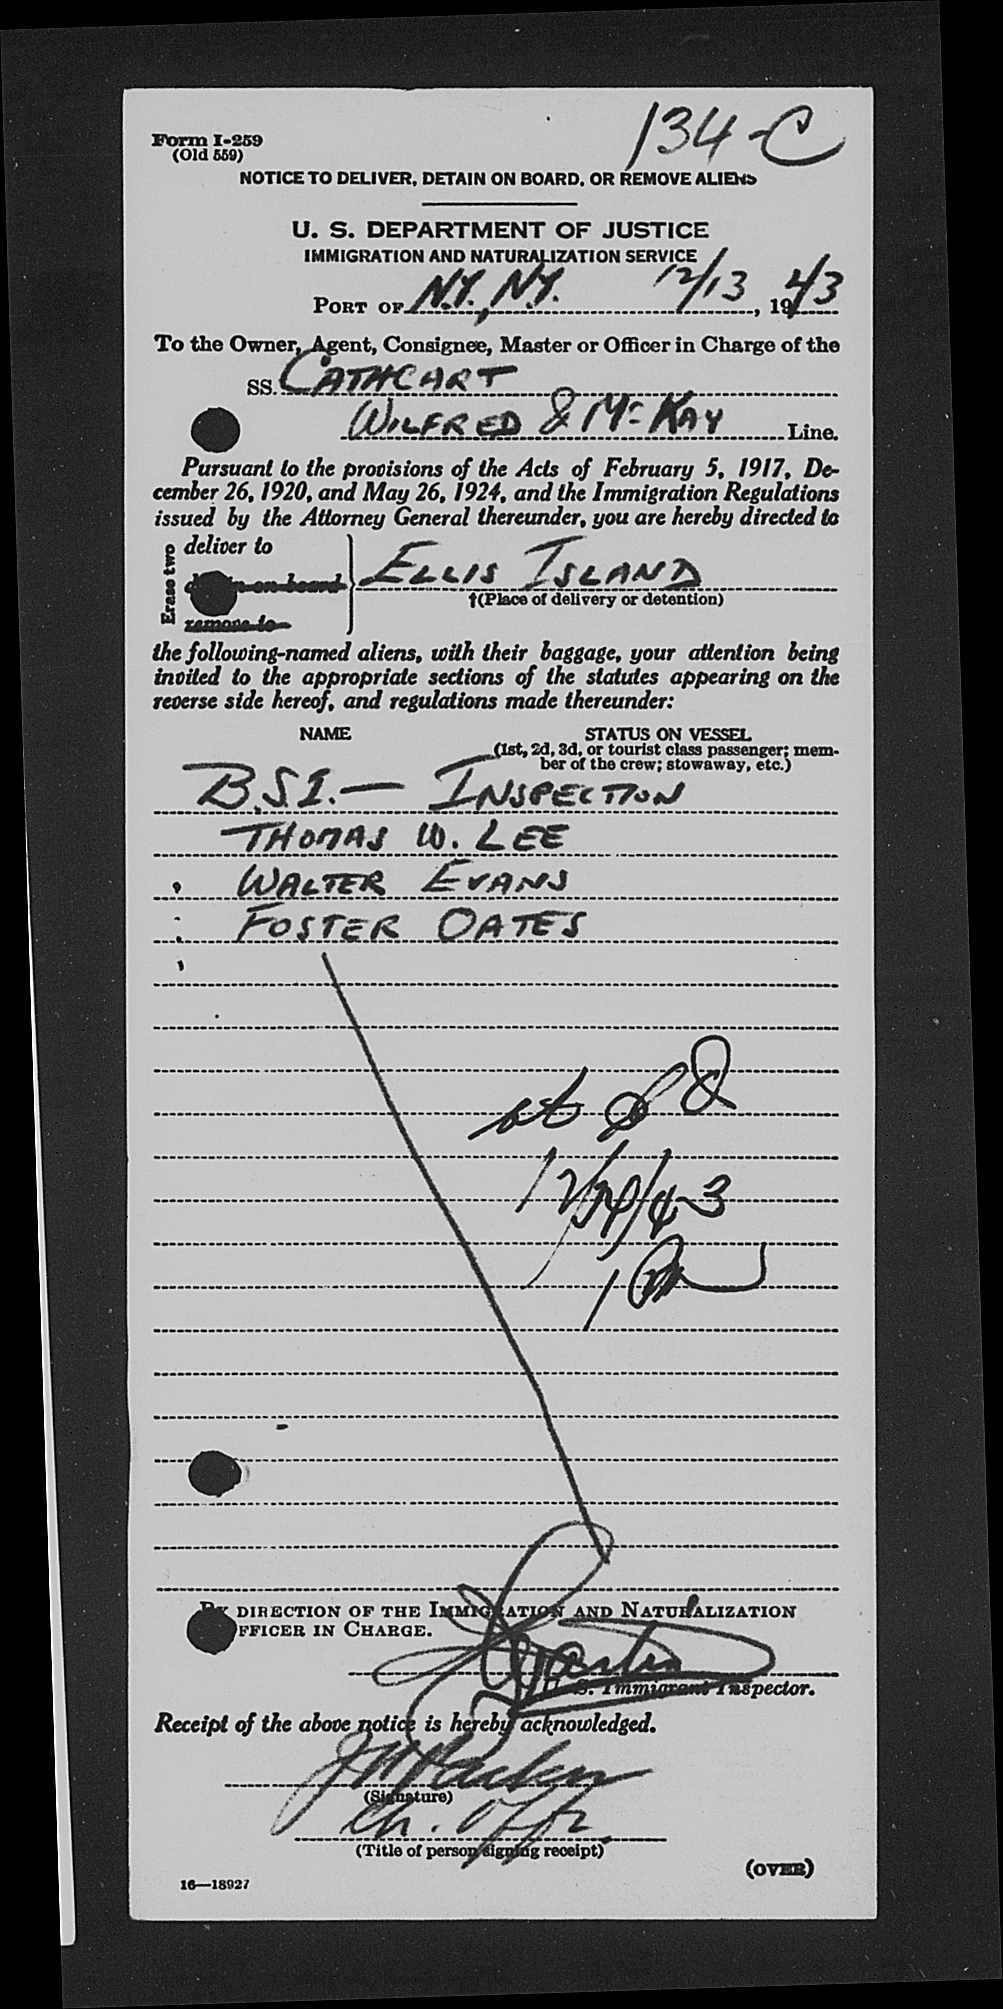 134-C
Form I-259
(Old 559)
NOTICE TO DELIVER, DETAIN ON BOARD, OR REMOVE ALIENS
U. S. DEPARTMENT OF JUSTICE
IMMIGRATION AND NATURALIZATION SERVICE
PORT OF N.Y., N.Y. 12/13, 1943
To the Owner, Agent, Consignee, Master or Officer in Charge of the
SS. CATHCART
WILFRED & McKAY Line.
Pursuant to the provisions of the Acts of February 5, 1917, De-
cember 26, 1920, and May 26, 1924, and the Immigration Regulations
issued by the Attorney General thereunder, you are hereby directed to
Erase two
deliver to
detain on board
remove to
ELLIS ISLAND
†(Place of delivery or detention)
the following-named aliens, with their baggage, your attention being
invited to the appropriate sections of the statutes appearing on the
reverse side hereof, and regulations made thereunder:
NAME STATUS ON VESSEL
(1st, 2d, 3d, or tourist class passenger; mem-
ber of the crew; stowaway, etc.)
B.S.I. — INSPECTION
THOMAS W. LEE
WALTER EVANS
FOSTER OATES
12/14/43
BY DIRECTION OF THE IMMIGRATION AND NATURALIZATION
OFFICER IN CHARGE.
U. S. Immigrant Inspector.
Receipt of the above notice is hereby acknowledged.
(Signature)
Ch. Offr.
(Title of person signing receipt)
(OVER)
16—18927